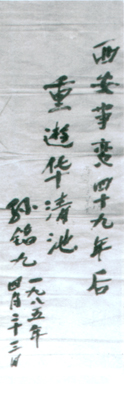 西安事变四十九年后
重遊华清池
孙铭九
一九八五年
四月二十三日